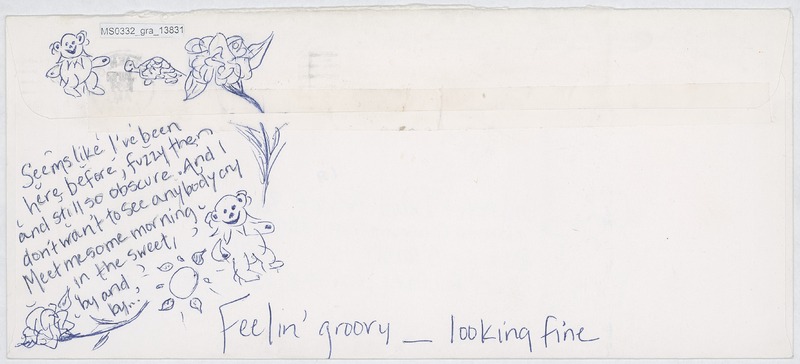 MS0332_gra_13831
Seems like I've been
here before, fuzzy then
and still so obscure. And I
don't want to see anybody cry
Meet me some morning
in the sweet,
by and
by...
Feelin' groovy — looking fine